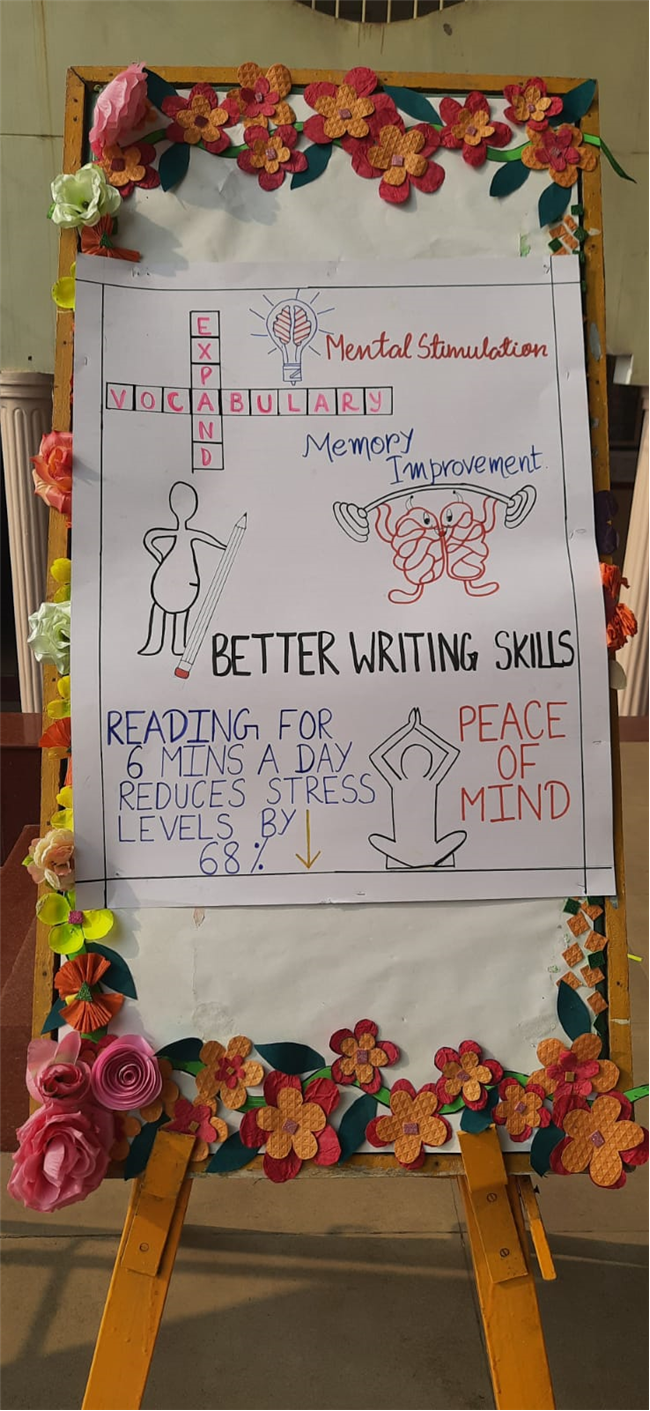 EXPAND
VOCABULARY
Mental Stimulation
Memory
Improvement.
BETTER WRITING SKILLS
READING FOR
6 MINS A DAY
REDUCES STRESS
LEVELS BY
68%
PEACE
OF
MIND